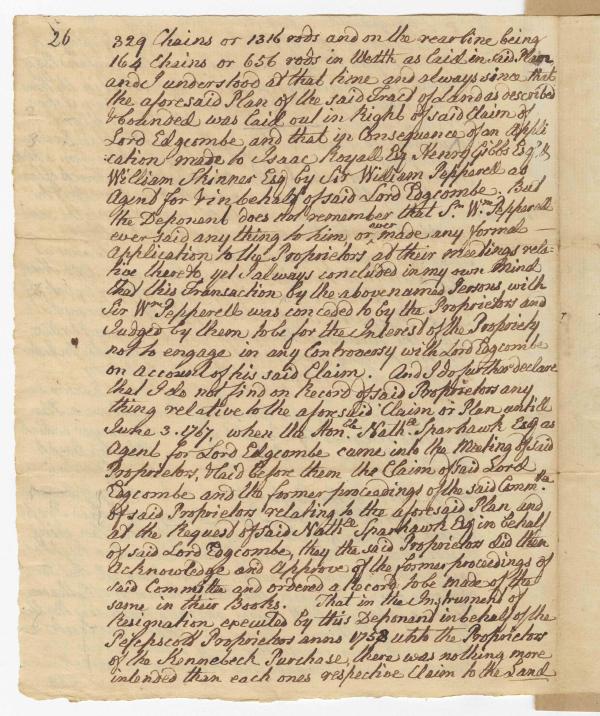 26
329 Chains or 1316 rods and on the rear line being
164 Chains or 656 rods in Wedth as laid in said Plan
and I understood at that time and always since that
the aforesaid Plan of the said Tract of Land as described
& bounded was laid out in Right of said Claim of
Lord Edgcombe and that in Consequence of an Appli
cation made to Isaac Royall Esq Henry Gibbs Esqr. &
William Skinner Esq by Sir William Pepperell as
Agent for & in behalf of said Lord Edgcombe. But
the Deponent does not remember that Sr. Wm. Pepperell
ever said any thing to him, or ever made any formal
Application to the Proprietors at their meetings rela=
tive thereto, yet I always concluded in my own Mind
that this Transaction by the above named Persons, with
Sir Wm. Pepperell was conceded to by the Proprietors and
Judged by them to be for the Interest of the Propriety
not to engage in any Controversy with Lord Edgcombe
on account of his said Claim. And I do further declare
that I do not find on Record of said Proprietors any
thing relative to the aforesaid Claim or Plan untill
June 3. 1767, when the Honble. Nathll. Sparhawk Esq as
Agent for Lord Edgcombe came into the Meeting of said
Proprietors, & laid before them the Claim of said Lord
Edgcombe and the former proceedings of the said Commttee
of said Proprietors relating to the aforesaid Plan, and
at the Request of said Nathll Sparhawk Esq in behalf
of said Lord Edgcombe, they the said Proprietors did then
Acknowledge and Approve of the former proceedings of
said Committe and ordered a Record to be made of the
same in their Books. That in the Instrument of
Resignation executed by this Deponent in behalf of the
Pejepscott Proprietors anno 1758 unto the Proprietors
of the Kennebeck Purchase, there was nothing more
intended than each ones respective Claim to the Land